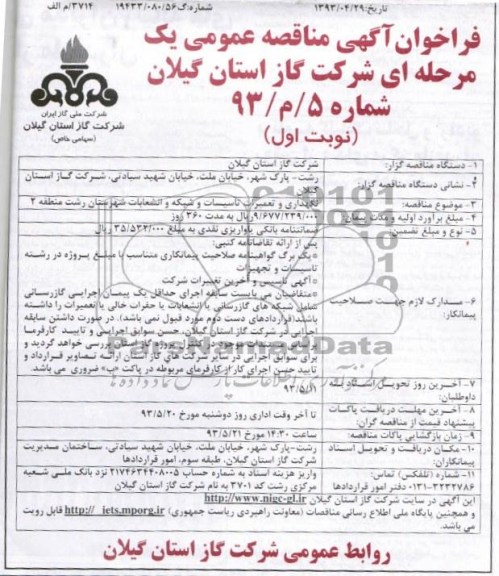 تاریخ:۱۳۹۳/۰۴/۲۹
شماره:گ۱۹۴۳۳/۰۸۰/۵۶
۳۷۱۴/م الف
فراخوان آگهی مناقصه عمومی یک
مرحله ای شرکت گاز استان گیلان
شماره ۵/م/۹۳
(نوبت اول)
شرکت ملی گاز ایران
شرکت گاز استان گیلان
(سهامی خاص)
۱- دستگاه مناقصه گزار: شرکت گاز استان گیلان
۲- نشانی دستگاه مناقصه گزار: رشت- پارک شهر، خیابان ملت، خیابان شهید سیادتی، شرکت گاز استان
گیلان
۳- موضوع مناقصه: نگهداری و تعمیرات تاسیسات و شبکه و انشعابات شهرستان رشت منطقه ۲
۴- مبلغ برآورد اولیه و مدت پیمان ۹/۶۷۷/۲۳۹/۰۰۰ریال به مدت ۳۶۰ روز
۵- نوع و مبلغ تضمین: ضمانتنامه بانکی یا واریزی نقدی به مبلغ ۳۵/۵۳۲/۰۰۰ ریال
۶- مدارک لازم جهت صلاحیت
پیمانکار:
پس از ارائه تقاضانامه کتبی:
*یک برگ گواهینامه صلاحیت پیمانکاری متناسب با مبلغ پروژه در رشته
تاسیسات و تجهیزات
*آگهی تاسیس و آخرین تغییرات شرکت
*متقاضیان می بایست سابقه اجرای حداقل یک پیمان اجرایی گازرسانی
شامل شبکه های گازرسانی یا انشعابات یا حفرات خالی یا تعمیرات را داشته
باشند(قراردادهای دست دوم مورد قبول نمی باشد). در صورت داشتن سابقه
اجرایی در شرکت گاز استان گیلان، حسن سوابق اجرایی و تایید کارفرما
موجود در دفتر پروژه گاز استان بررسی خواهد گردید و
برای سوابق اجرایی در سایر شرکت های گاز استان ارائه تصاویر قرارداد و
تایید حسن اجرای کار از کارفرمای مربوطه در پاکت «ب» ضروری می باشد.
۷- آخرین روز تحویل اسناد به
داوطلبان: ۹۳/۵/۱۱
۸- آخرین مهلت دریافت پاکات
پیشنهاد قیمت از مناقصه گران: تا آخر وقت اداری روز دوشنبه مورخ ۹۳/۵/۲۰
۹- زمان بازگشایی پاکات مناقصه: ساعت ۱۴:۳۰ مورخ ۹۳/۵/۲۱
۱۰- مکان دریافت و تحویل اسناد
پیمانکاران: رشت-پارک شهر، خیابان ملت، خیابان شهید سیادتی، ساختمان مدیریت
شرکت گاز استان گیلان، طبقه سوم، امور قراردادها
۱۱- شماره (تلفکس) تماس:
۳۲۳۲۷۸۶-۰۱۳۱ دفتر امور قراردادها
واریز هزینه اسناد به شماره حساب ۲۱۷۴۶۳۲۴۴۰۸۰۰۵ نزد بانک ملی شعبه
مرکزی رشت کد ۳۷۰۱ به نام شرکت گاز استان گیلان
این آگهی در سایت شرکت گاز استان گیلان http://www.nigc-gl.ir
و همچنین پایگاه ملی اطلاع رسانی مناقصات (معاونت راهبردی ریاست جمهوری) http:// iets.mporg.ir قابل رویت
می باشد.
روابط عمومی شرکت گاز استان گیلان